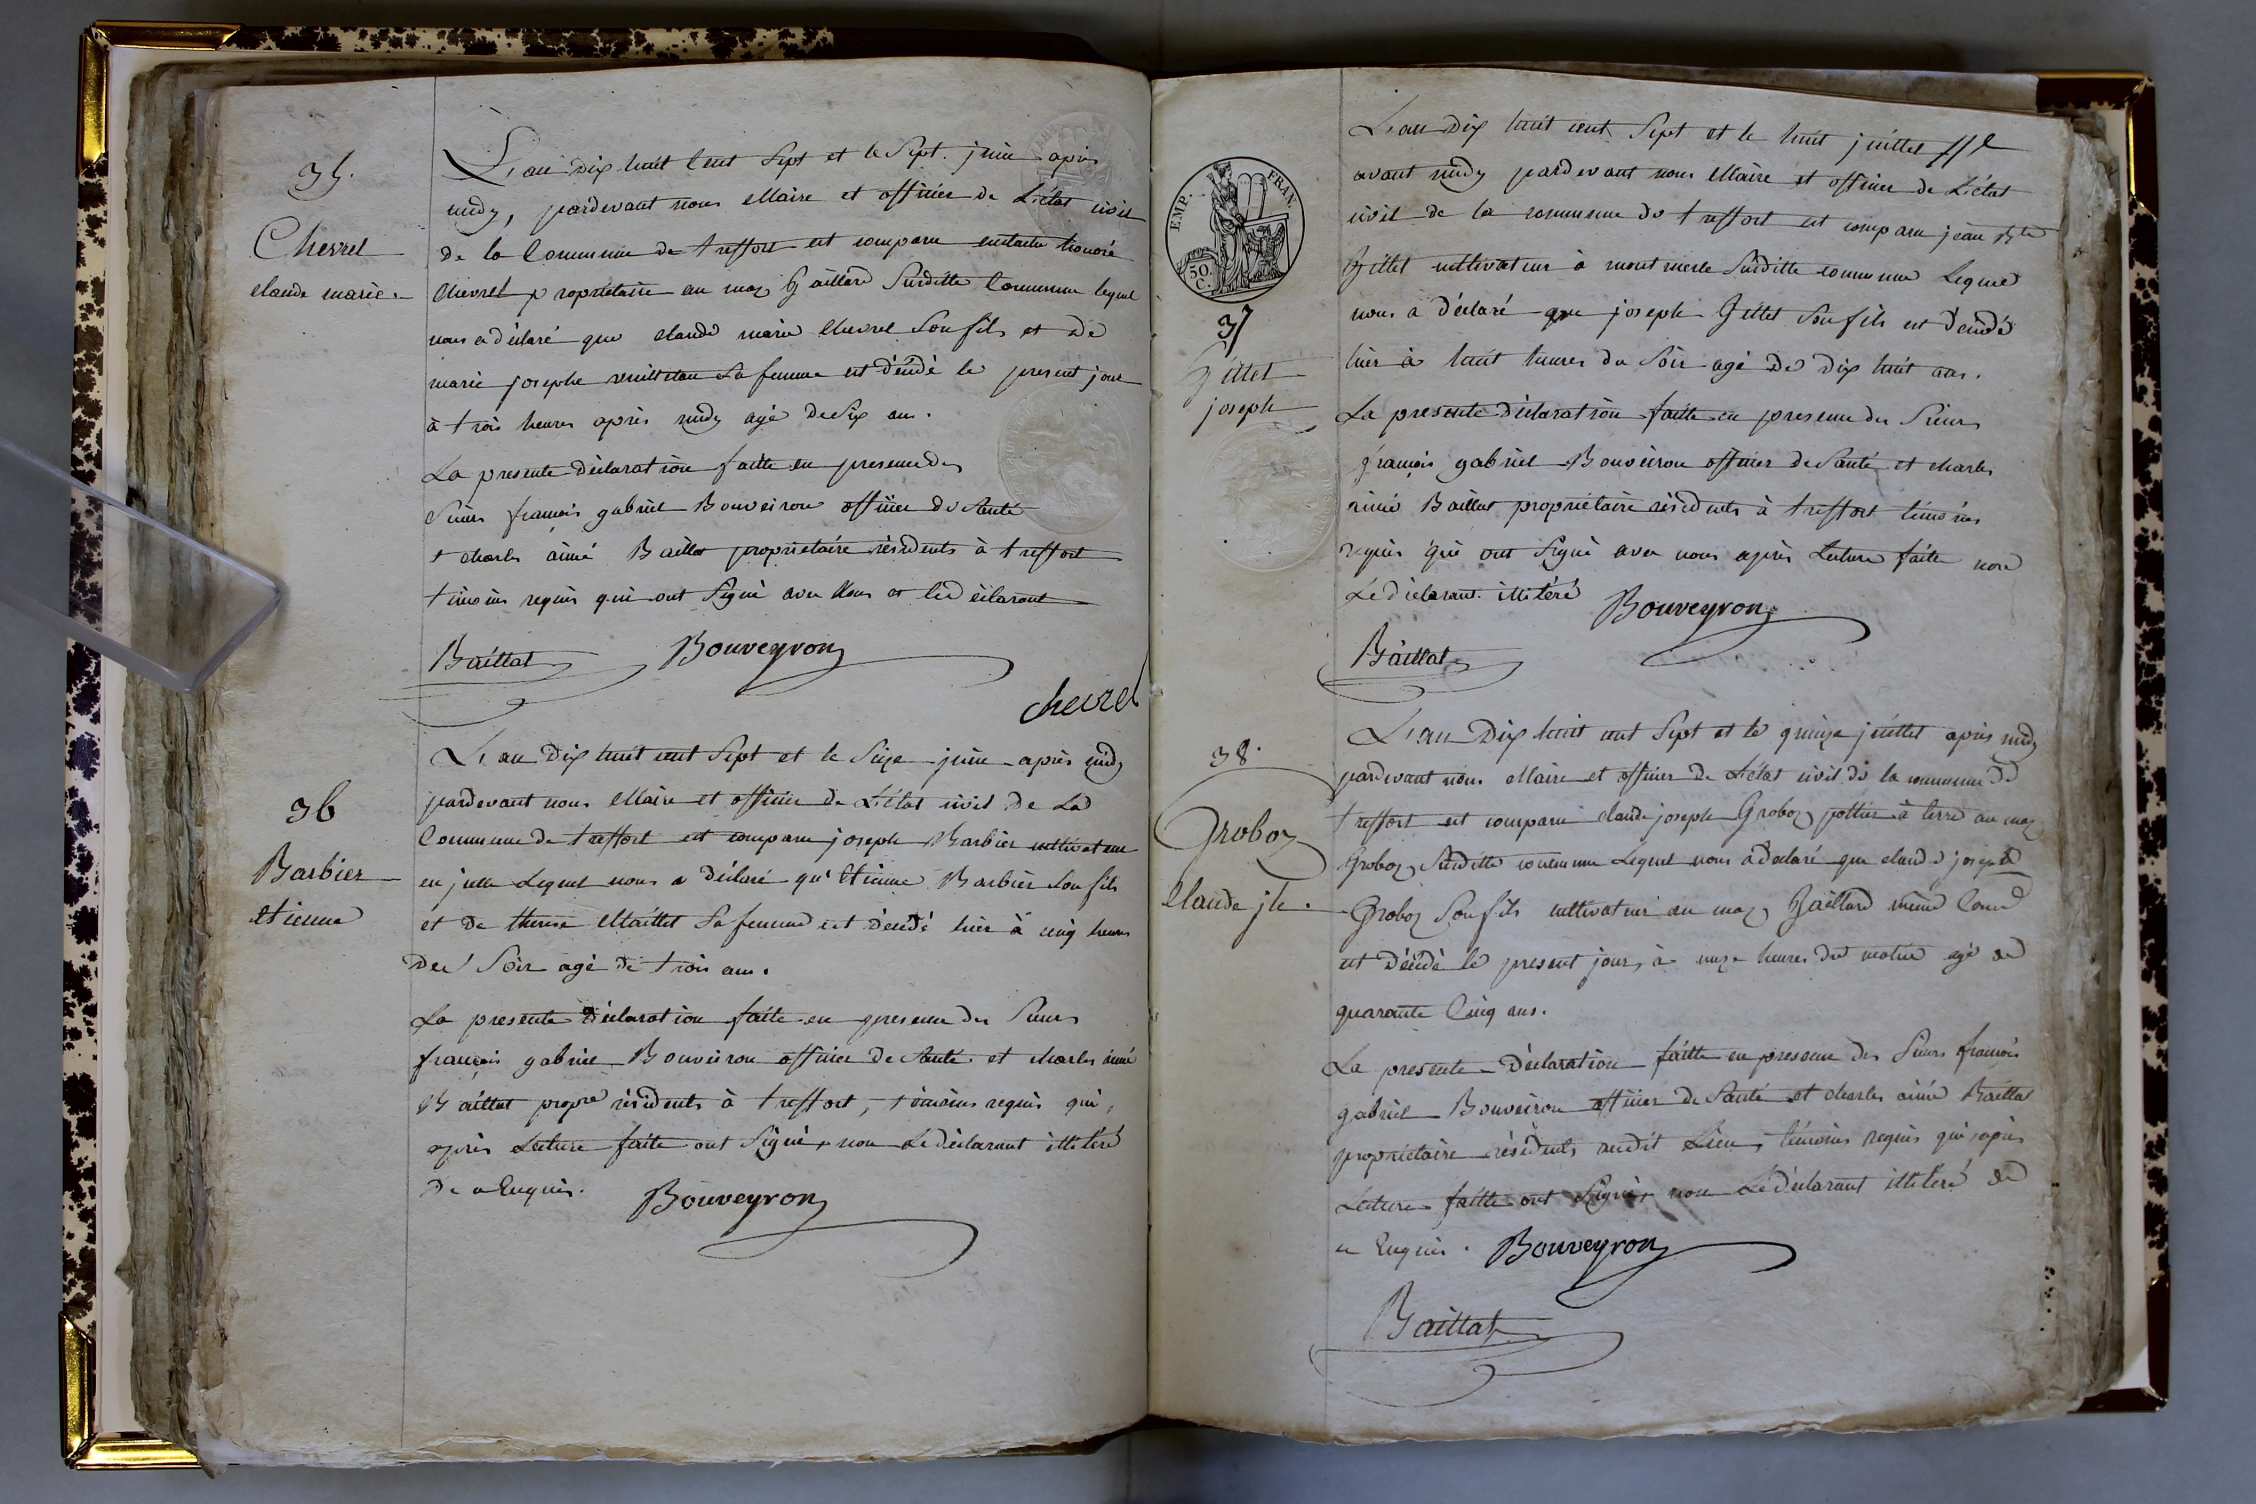 35.
Chevrel
claude marie.
L'an dix huit Cent Sept et le Sept juin après
midy, pardevant nous Maire et officier de L'état civil
de la Commune de treffort est comparu eustache honoré
chevrel propriétaire au maz Gaillard Surditte Commune lequel
nous a déclaré que claude marie Chevrel Son fils et de
marie josephe Sa femme est décédé le present jour
à trois heures après midy agé de Six ans.
La presente déclaration faitte en presence des
Sieurs françois gabriel Bouveiron officier de Santé
et charles aimé Baillat propriétaire résidents à treffort
témoins requis qui ont Signé avec Nous et le déclarant
Baillat Bouveyron
chevrel
36
Barbier
etienne
L'an Dix huit cent Sept et le Seize juin après midy
pardevant nous Maire et officier de L'état civil de La
Commune de treffort est comparu joseph Barbier cultivateur
en Lequel nous a déclaré qu'Etienne Barbier Son fils
et de therese Maillet Sa femme est décédé hier à cinq heures
Du Soir agé de trois ans.
La presente déclaration faitte en presence des Sieurs
françois gabriel Bouveiron officier de Santé et charles aimé
Baillat propre résidents à treffort, témoins requis qui,
après Lecture faite ont Signé, non Le déclarant illitéré
De ce Enquis. Bouveyron
EMP. FRAN.
50.
C.
37
Gillet
joseph
L'an Dix huit cent Sept et le huit juillet
avant midy pardevant nous Maire et officier de L'état
civil de la commune de treffort est comparu jean Bte
Gillet cultivateur à montmerle Surditte commune Lequel
nous a déclaré que joseph Gillet Son fils est décédé
hier à huit heures du Soir agé de Dix huit ans.
La presente déclaration faitte en presence des Sieurs
françois gabriel Bouveiron officier de Santé et charles
aimé Baillat propriétaire résidents à treffort témoins
requis qui ont Signé avec nous après Lecture faitte non
Le déclarant illitéré Bouveyron
Baillat
38.
Groboz
Claude jh.
L'an Dix huit cent Sept et le quinze juillet après midy
pardevant nous Maire et officier de L'état civil de la commune de
treffort est comparu claude joseph Groboz pottier à terre au maz
Groboz Surditte commune Lequel nous a declaré que claude joseph
Groboz Son fils cultivateur au maz Gaillard même
est décédé le present jour, à onze heures du matin agé de
quarante Cinq ans.
La presente déclaration faitte en presence des Sieurs françois
gabriel Bouveiron officier de Santé et charles aimé Baillat
propriétaire résidents audit Lieu, témoins requis qui après
Lecture faitte ont Signé, non Le déclarant illitéré de
ce Enquis. Bouveyron
Baillat